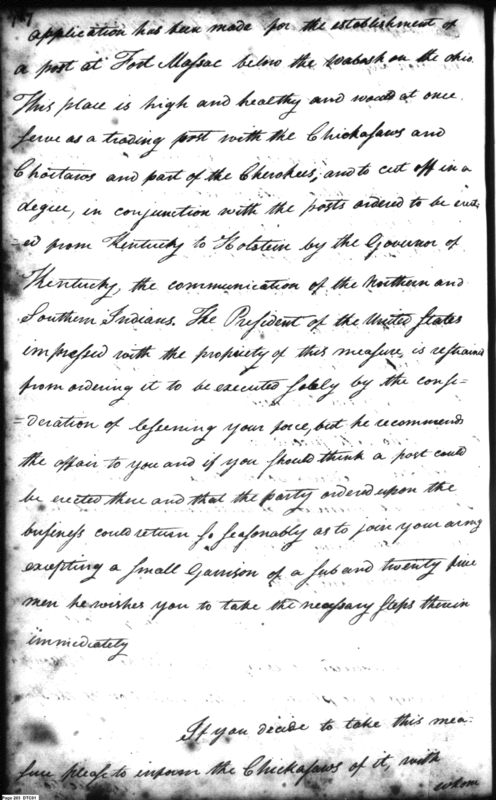 application has been made for the establishment of
a post at Fort Massac below the wabash on the ohio.
This place is high and healthy and would at once
serve as a trading post with the Chickasaws and
Choctaws and part of the Cherokees, and to cut off in a
degree, in conjunction with the posts ordered to be erect
=ed from Kentucky to Holstein by the Governor of
Kentucky, the communication of the Northern and
Southern Indians. The President of the United States
impressed with the propriety of this measure, is restrained
from ordering it to be executed solely by the consi=
=deration of lessening your force, but he recommends
the affair to you and if you should think a post could
be erected there and that the party ordered upon the
business could return so seasonably as to join your army
excepting a small Garrison of a sub and twenty five
men he wishes you to take the necessary steps therein
immediately
If you decide to take this mea-
sure please to inform the Chickasaws of it, with
whom
Page 203 DTC01